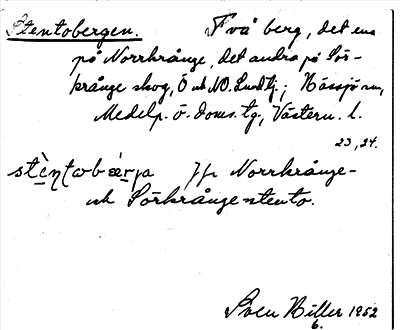 Stentobergen. Två berg, det ena
på Norrkrånge, det andra på Sör-
krånge skog, Ö och NO. Lundtj.; Hässjö sn,
Medelp. ö. doms. tg., Västern. l.
23, 24.
Jfr Norrkrånge-
och Sörkrångestento.
Sven Hiller 1952
6.